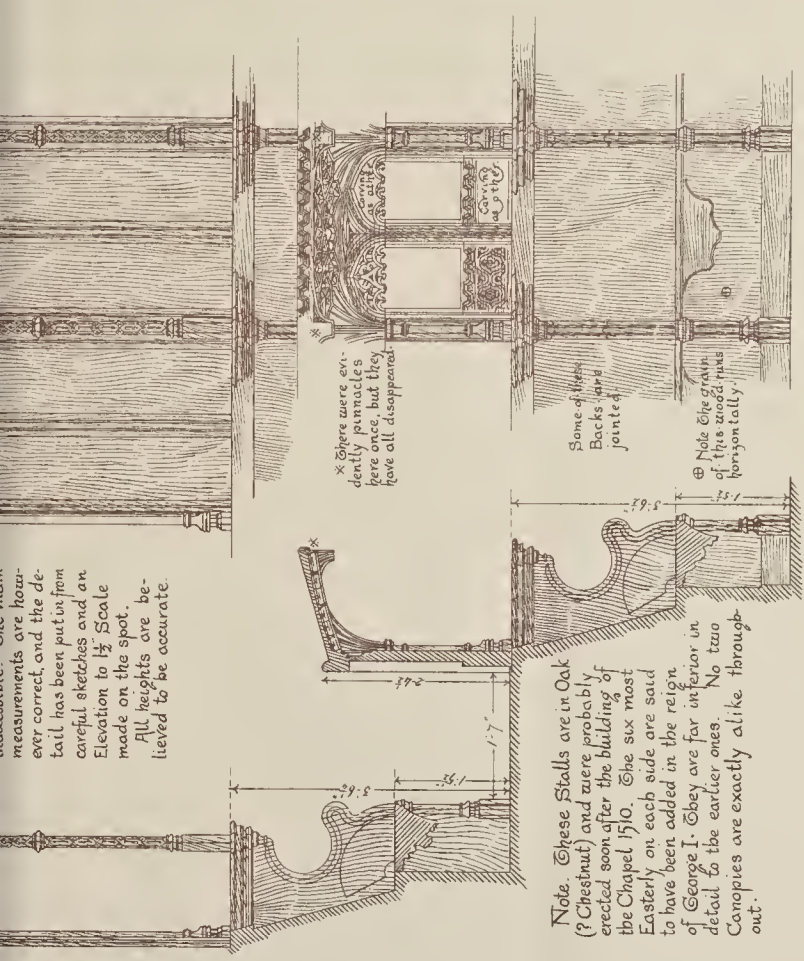 measurements are how-
ever correct, and the de-
tail has been put in from
careful sketches and an
Elevation to 1½" Scale
made on the spot.
All heights are be-
lieved to be accurate.
* There were evi-
dently pinnacles
here once, but they
have all disappeared.
Carving
as other
Carving
as other.
Some of these
Backs are
jointed.
⊕ Note the grain
of this wood runs
horizontally.
3'.6½"
1'.5½"
2'.4½"
1'.7"
3'.6½"
1'.9½"
Note. These Stalls are in Oak
(? Chestnut) and were probably
erected soon after the building of
the Chapel 1510. The six most
Easterly on each side are said
to have been added in the reign
of George I. They are far inferior in
detail to the earlier ones. No two
Canopies are exactly alike through-
out.